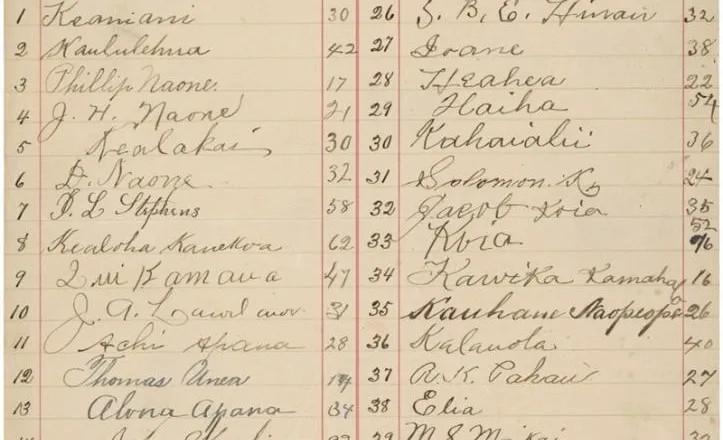 1 Keaniani 30
2 Kaululehua 42
3 Phillip Naone. 17
4 J. H. Naone 21
5 Kealakai 30
6 D. Naone 32
7 D. L Stephens 58
8 Kealoha Kanekoa 62
9 Lui Kamaua 47
10 J. A. 31
11 Achi Apana 28
12 Thomas Anea
13 Alona Apana 34
26 S. B. E. 32
27 Ioane 38
28 Heahea 22
29 Haiha 54
30 Kahaialii 36
31 Solomon. K 24
32 Jacob Koia 35
33 Koia 52
34 Kawika Kamaha 16
35 Kauhane Naopeope 26
36 Kalauola 40
37 A. K. Pahau 27
38 Elia 28
M S